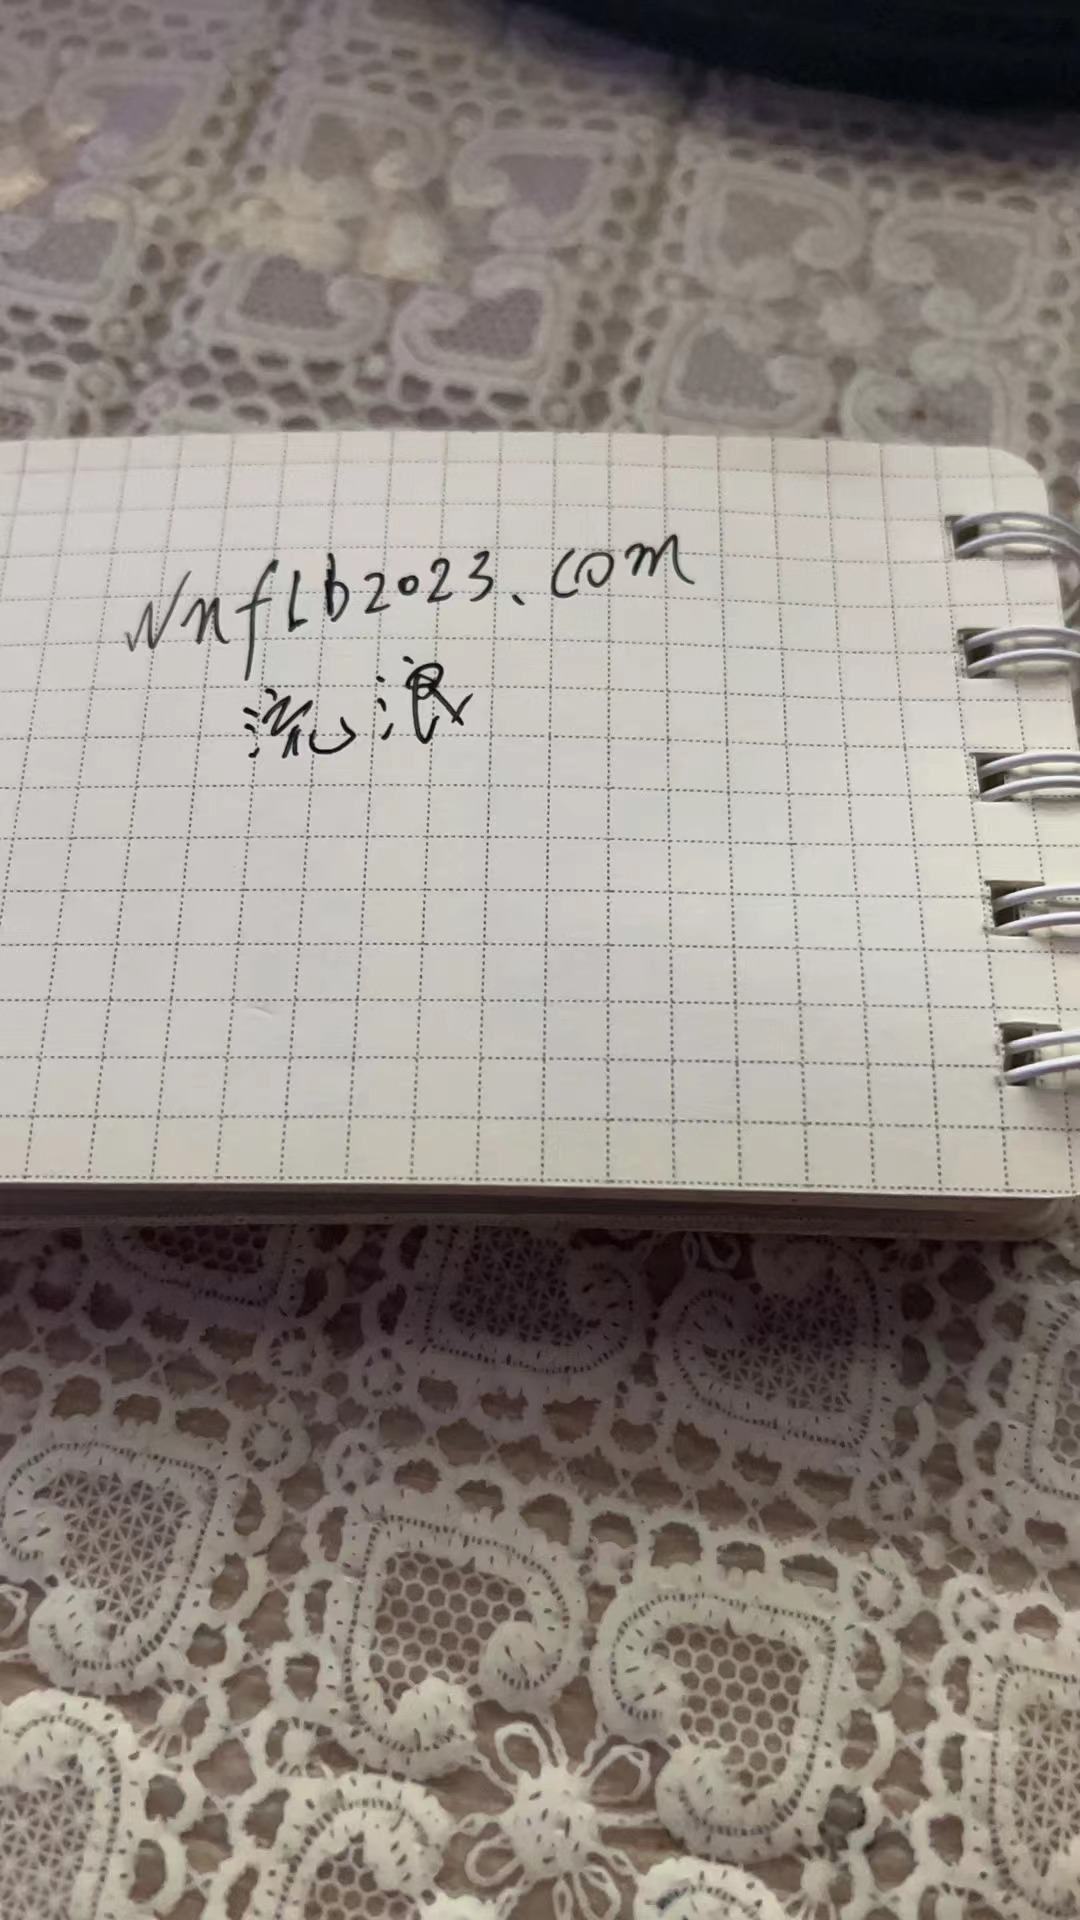 Nnflb2023.com
流浪